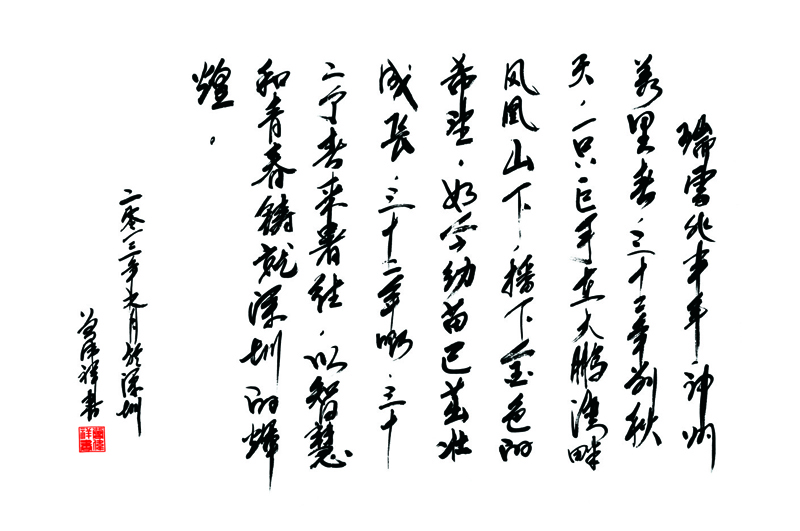 瑞雪兆丰年神州
萬里春三十二年前秋
天，一只巨手在大鹏湾畔
凤凰山下，播下金色的
希望，如今幼苗已茁壮
成长，三十二年啊，三十
二个春来暑往，以智慧
和青春铸就深圳的辉
煌。
二零一三年月於深圳